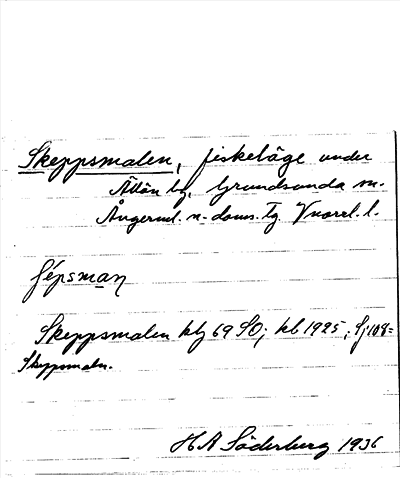 Skeppsmalen, fiskeläge under
by, Grundsunda sn.
Ångerml. n. doms. tg. Vnorrl. l.
Skeppsmalen kbl 69 SO; kb 1925; Sj 108=
Skeppsmaln.
H A Söderberg 1936